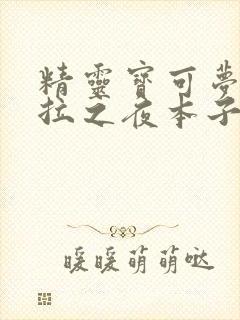 精靈寶可夢
拉之夜本子
暖暖萌萌哒